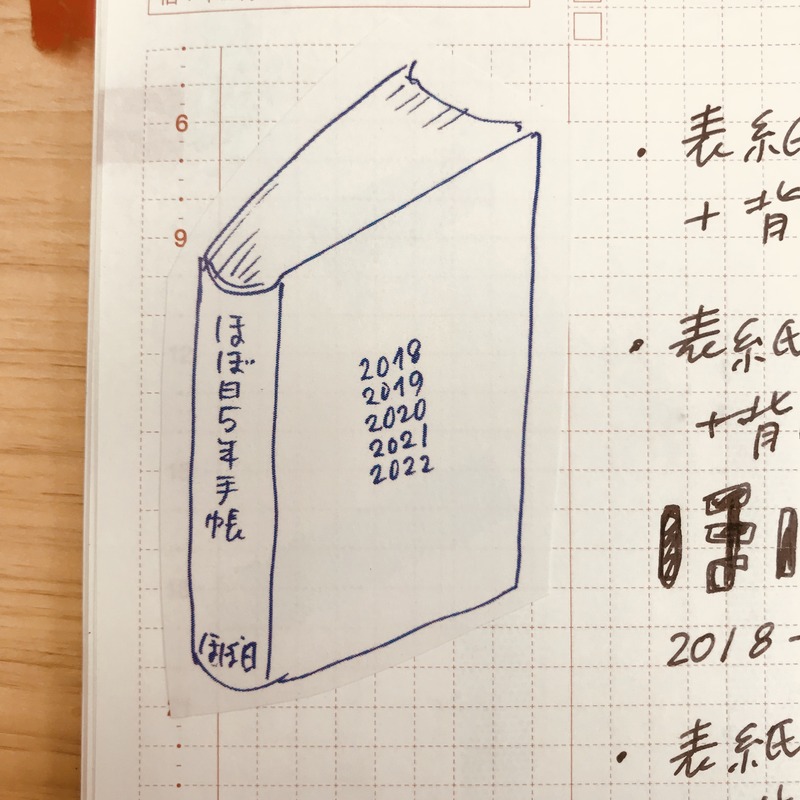 6
9
ほぼ日5年手帳
ほぼ日
2018
2019
2020
2021
2022
・表紙
+背
・表紙
+背
ほ
2018-
・表紙